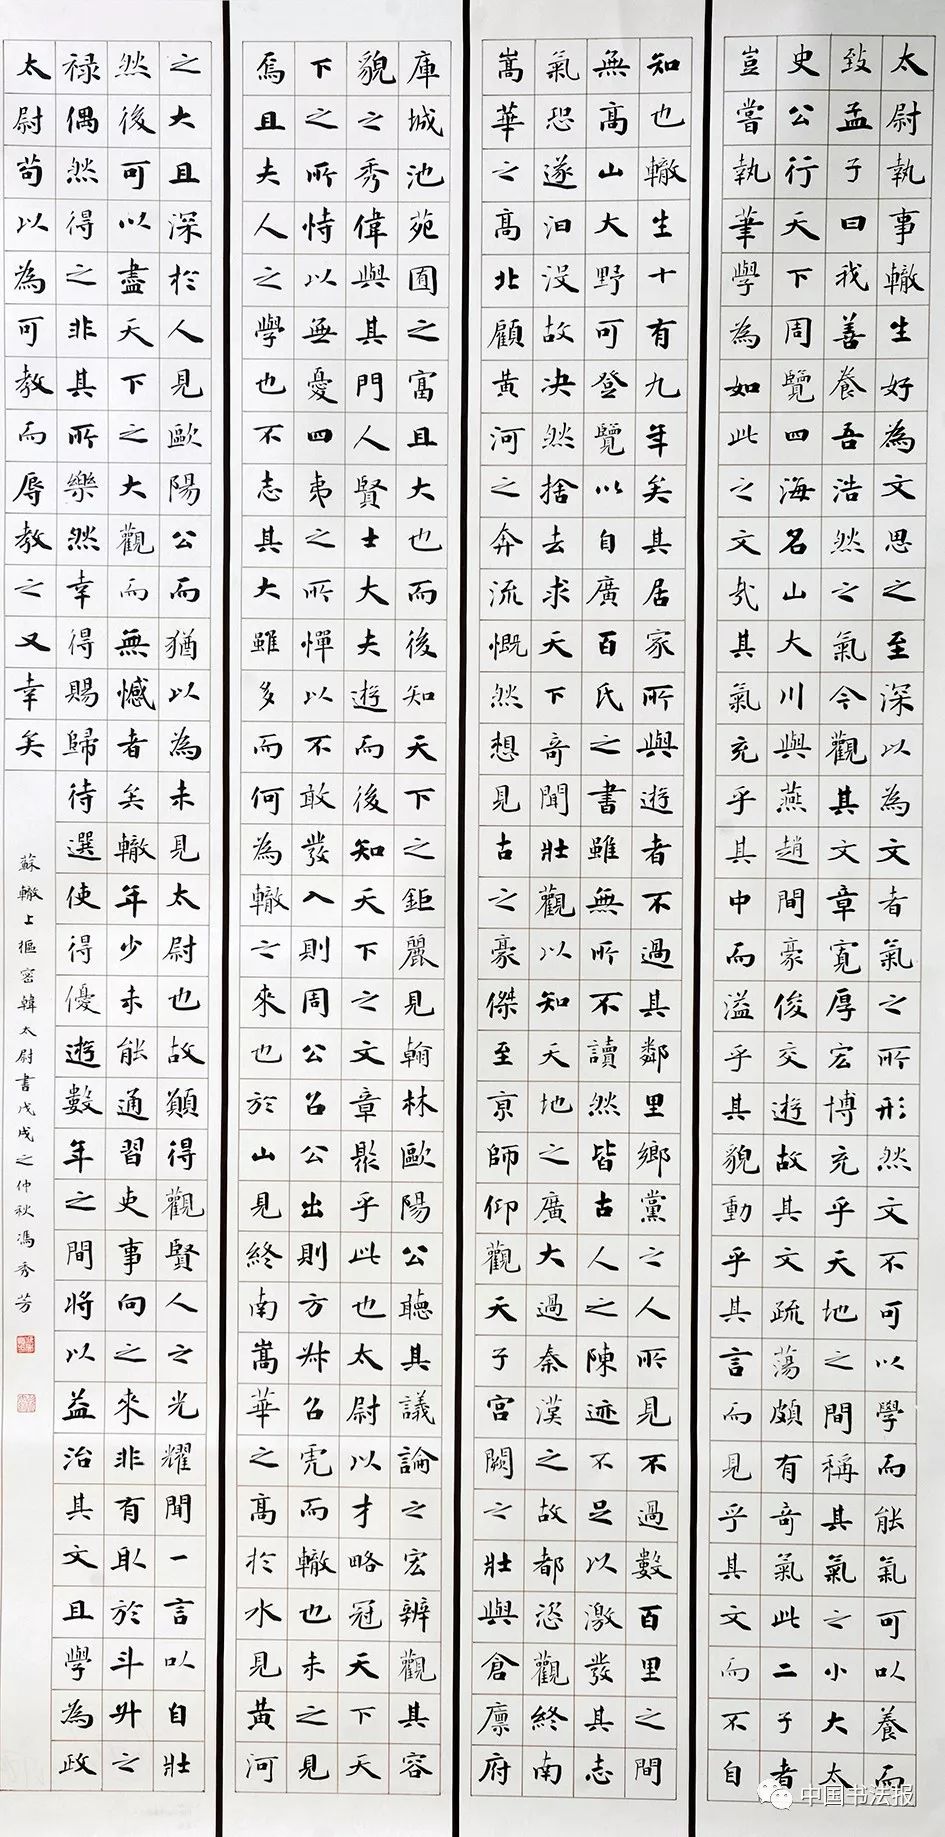 太尉執事轍生好為文思之至深以為文者氣之所形然文不可以學而能氣可以養而
致孟子曰我善養吾浩然之氣今觀其文章寬厚宏博充乎天地之間稱其氣之小大太
史公行天下周覽四海名山大川與燕趙間豪俊交遊故其文疏蕩頗有奇氣此二子者
豈嘗執筆學為如此之文哉其氣充乎其中而溢乎其貌動乎其言而見乎其文而不自
知也轍生十有九年矣其居家所與遊者不過其鄰里鄉黨之人所見不過數百里之間
無高山大野可登覽以自廣百氏之書雖無所不讀然皆古人之陳迹不足以激發其志
氣恐遂汩没故决然捨去求天下奇聞壯觀以知天地之廣大過秦漢之故都恣觀終南
嵩華之高北顧黄河之奔流慨然想見古之豪傑至京師仰觀天子宮闕之壯與倉廪府
庫城池苑囿之富且大也而後知天下之鉅麗見翰林歐陽公聽其議論之宏辨觀其容
貌之秀偉與其門人賢士大夫遊而後知天下之文章聚乎此也太尉以才略冠天下天
下之所恃以無憂四夷之所憚以不敢發入則周公召公出則方叔召虎而轍也未之見
焉且夫人之學也不志其大雖多而何為轍之來也於山見終南嵩華之高於水見黄河
之大且深於人見歐陽公而猶以為未見太尉也故願得觀賢人之光耀聞一言以自壯
然後可以盡天下之大觀而無憾者矣轍年少未能通習吏事向之來非有取於斗升之
禄偶然得之非其所樂然幸得賜歸待選使得優遊數年之間將以益治其文且學為政
太尉苟以為可教而辱教之又幸矣
蘇轍上樞密韓太尉書戊戌之仲秋馮秀芳
中国书法报